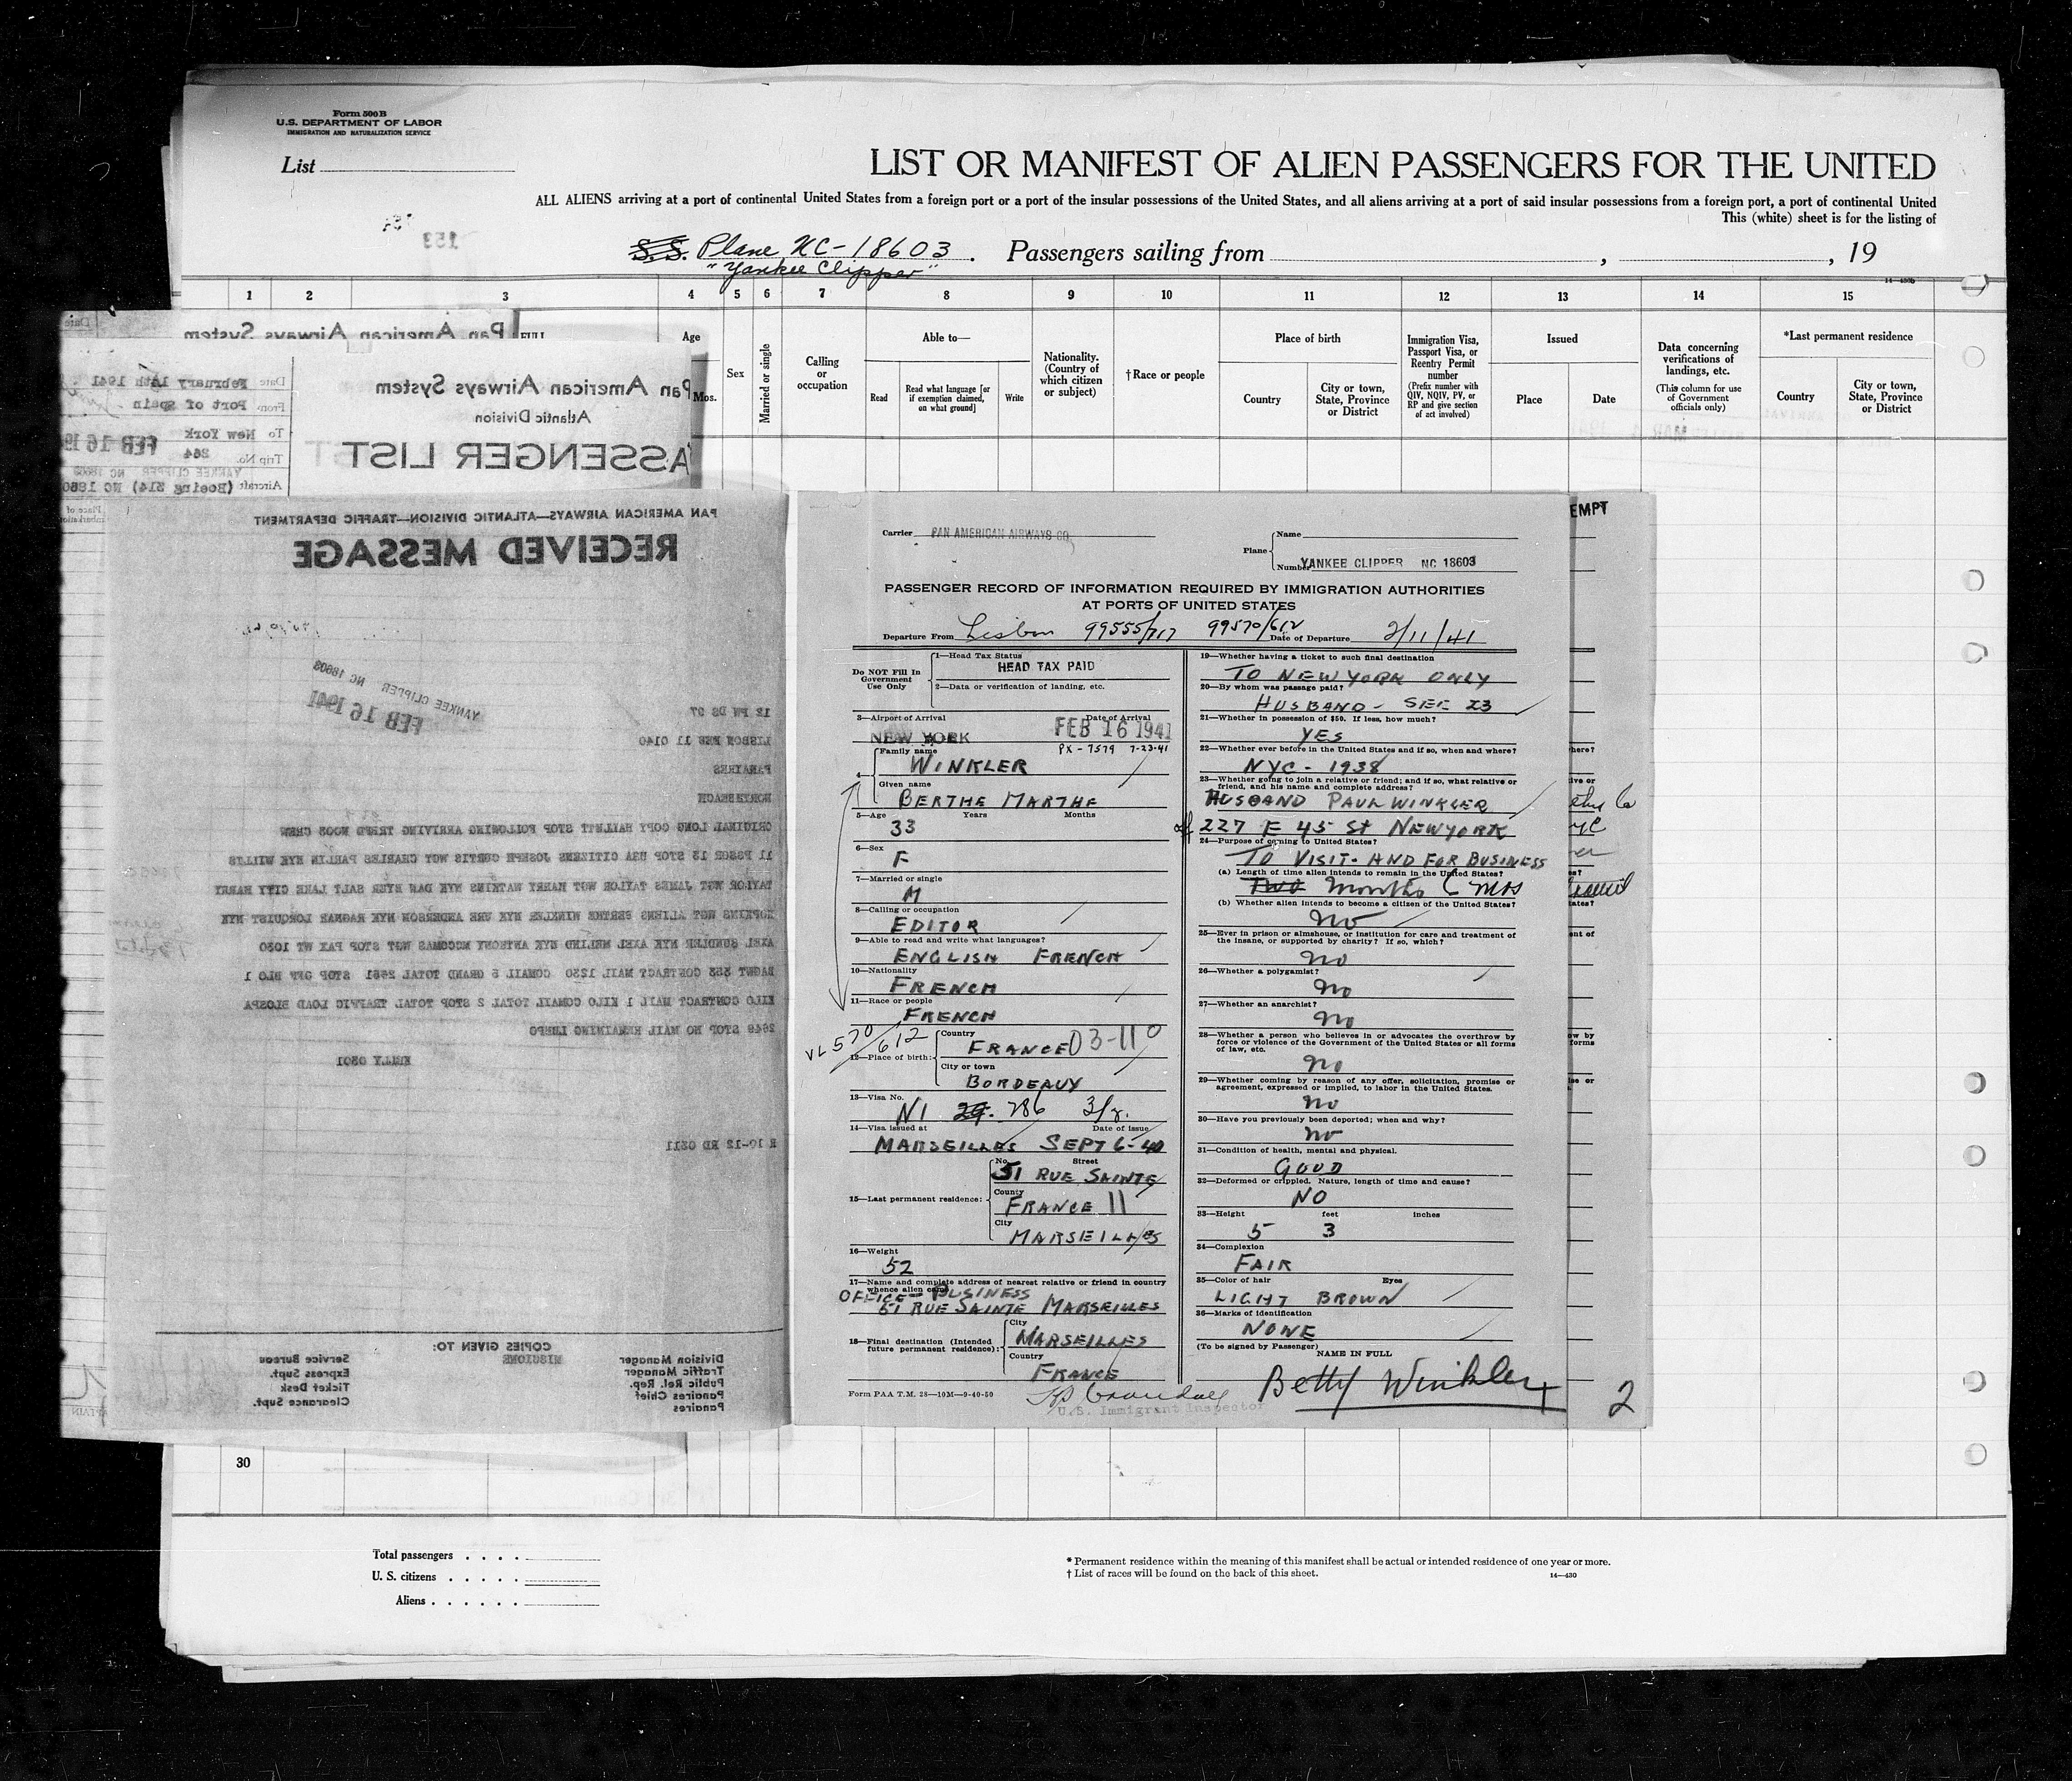 Form 500B
U.S. DEPARTMENT OF LABOR
IMMIGRATION AND NATURALIZATION SERVICE
List
LIST OR MANIFEST OF ALIEN PASSENGERS FOR THE UNITED
ALL ALIENS arriving at a port of continental United States from a foreign port or a port of the insular possessions of the United States, and all aliens arriving at a port of said insular possessions from a foreign port, a port of continental United
This (white) sheet is for the listing of
153
S.S. Plane NC-18603. Passengers sailing from , , 19
"Yankee Clipper"
1 2 3 4 5 6 7 8 9 10 11 12 13 14 15
Age
Mos.
Sex
Married or single
Calling or occupation
Able to—
Read
Read what language [or if exemption claimed, on what ground]
Write
Nationality. (Country of which citizen or subject)
†Race or people
Place of birth
Country
City or town, State, Province or District
Immigration Visa, Passport Visa, or Reentry Permit number
(Prefix number with QIV, NQIV, PV, or RP and give section of act involved)
Issued
Place
Date
Data concerning verifications of landings, etc.
(This column for use of Government officials only)
*Last permanent residence
Country
City or town, State, Province or District
Pan American Airways System
Pan American Airways System
Atlantic Division
PASSENGER LIST
Date February 16th 1941
From Port of Spain
To New York
Trip No. 264
FEB 16 1941
YANKEE CLIPPER NC 18603
Aircraft (Boeing 314) NC 18603
PAN AMERICAN AIRWAYS—ATLANTIC DIVISION—TRAFFIC DEPARTMENT
RECEIVED MESSAGE
YANKEE CLIPPER NC 18603
FEB 16 1941
12 PW DS 97
LISBON FEB 11 0140
PANAIRES
NORTHBEACH
ORIGINAL LONG COPY HALLETT STOP FOLLOWING ARRIVING TRIPD NC03 CREW
11 PSSGE 12 STOP USA CITIZENS JOSEPH CURTIS WGT CHARLES PARLIN NYK WILLIS
TAYLOR WGT JAMES TAYLOR WGT HARRY WATKINS NYK DAN EYER SALT LAKE CITY HARRY
HOPKINS WGT ALIENS BERTHE WINKLER NYK URE ANDERSON NYK RAGNAR LORQUIST NYK
AXEL SUNDLER NYK AXEL NEHLIND NYK ANTHONY MCCOMAS WGT STOP PAX WT 1020
BAGWT 252 CONTRACT MAIL 1220 COMAIL 5 GRAND TOTAL 2461 STOP OFF HLO 1
KILO CONTRACT MAIL 1 KILO COMAIL TOTAL 2 STOP TOTAL TRAFFIC LOAD BLOSPA
2649 STOP NO MAIL REMAINING LISPO
KELLY 0301
R 10-12 RD 0211
COPIES GIVEN TO:
Division Manager
Traffic Manager
Public Rel. Rep.
Panaires Chief
Panaires
Service Bureau
Express Supt.
Ticket Desk
Clearance Supt.
Carrier PAN AMERICAN AIRWAYS CO.
Plane
Name
Number YANKEE CLIPPER NC 18603
PASSENGER RECORD OF INFORMATION REQUIRED BY IMMIGRATION AUTHORITIES
AT PORTS OF UNITED STATES
Departure From Lisbon 99555/717 99570/612 Date of Departure 2/11/41
Do NOT Fill In Government Use Only
1—Head Tax Status
HEAD TAX PAID
2—Data or verification of landing, etc.
3—Airport of Arrival Date of Arrival
NEW YORK FEB 16 1941
PX-7579 7-23-41
4—Family name
WINKLER
Given name
BERTHE MARTHE
5—Age Years Months
33
6—Sex
F
7—Married or single
M
8—Calling or occupation
EDITOR
9—Able to read and write what languages?
ENGLISH FRENCH
10—Nationality
FRENCH
11—Race or people
FRENCH
VL 570/612
12—Place of birth:
Country
FRANCE 03-110
City or town
BORDEAUX
13—Visa No.
NI 29. 786 3/2.
14—Visa issued at Date of issue
MARSEILLES SEPT 6-40
15—Last permanent residence:
No. Street
51 RUE SAINTE
County
FRANCE 11
City
MARSEILLES
16—Weight
52
17—Name and complete address of nearest relative or friend in country whence alien came
OFFICE - BUSINESS
51 RUE SAINTE MARSEILLES
18—Final destination (Intended future permanent residence):
City
MARSEILLES
Country
FRANCE
Form PAA T.M. 28—10M—9-40-50
U.S. Immigrant Inspector
19—Whether having a ticket to such final destination
TO NEW YORK ONLY
20—By whom was passage paid?
HUSBAND - SEE 23
21—Whether in possession of $50. If less, how much?
YES
22—Whether ever before in the United States and if so, when and where?
NYC - 1938
23—Whether going to join a relative or friend; and if so, what relative or friend, and his name and complete address?
HUSBAND PAUL WINKLER
227 E 45 St NEW YORK
24—Purpose of coming to United States?
TO VISIT - AND FOR BUSINESS
(a) Length of time alien intends to remain in the United States?
Two months 6 mos
(b) Whether alien intends to become a citizen of the United States?
No
25—Ever in prison or almshouse, or institution for care and treatment of the insane, or supported by charity? If so, which?
No
26—Whether a polygamist?
No
27—Whether an anarchist?
No
28—Whether a person who believes in or advocates the overthrow by force or violence of the Government of the United States or all forms of law, etc.
No
29—Whether coming by reason of any offer, solicitation, promise or agreement, expressed or implied, to labor in the United States.
No
30—Have you previously been deported; when and why?
No
31—Condition of health, mental and physical.
GOOD
32—Deformed or crippled. Nature, length of time and cause?
NO
33—Height feet inches
5 3
34—Complexion
FAIR
35—Color of hair Eyes
LIGHT BROWN
36—Marks of identification
NONE
(To be signed by Passenger)
NAME IN FULL
Betty Winkler
EMPT
2
30
Total passengers
U. S. citizens
Aliens
* Permanent residence within the meaning of this manifest shall be actual or intended residence of one year or more.
† List of races will be found on the back of this sheet.
14—430